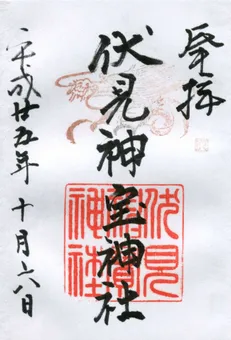 登拝
伏見神宝神社
伏見
神寳
神社
平成廿五年十月六日